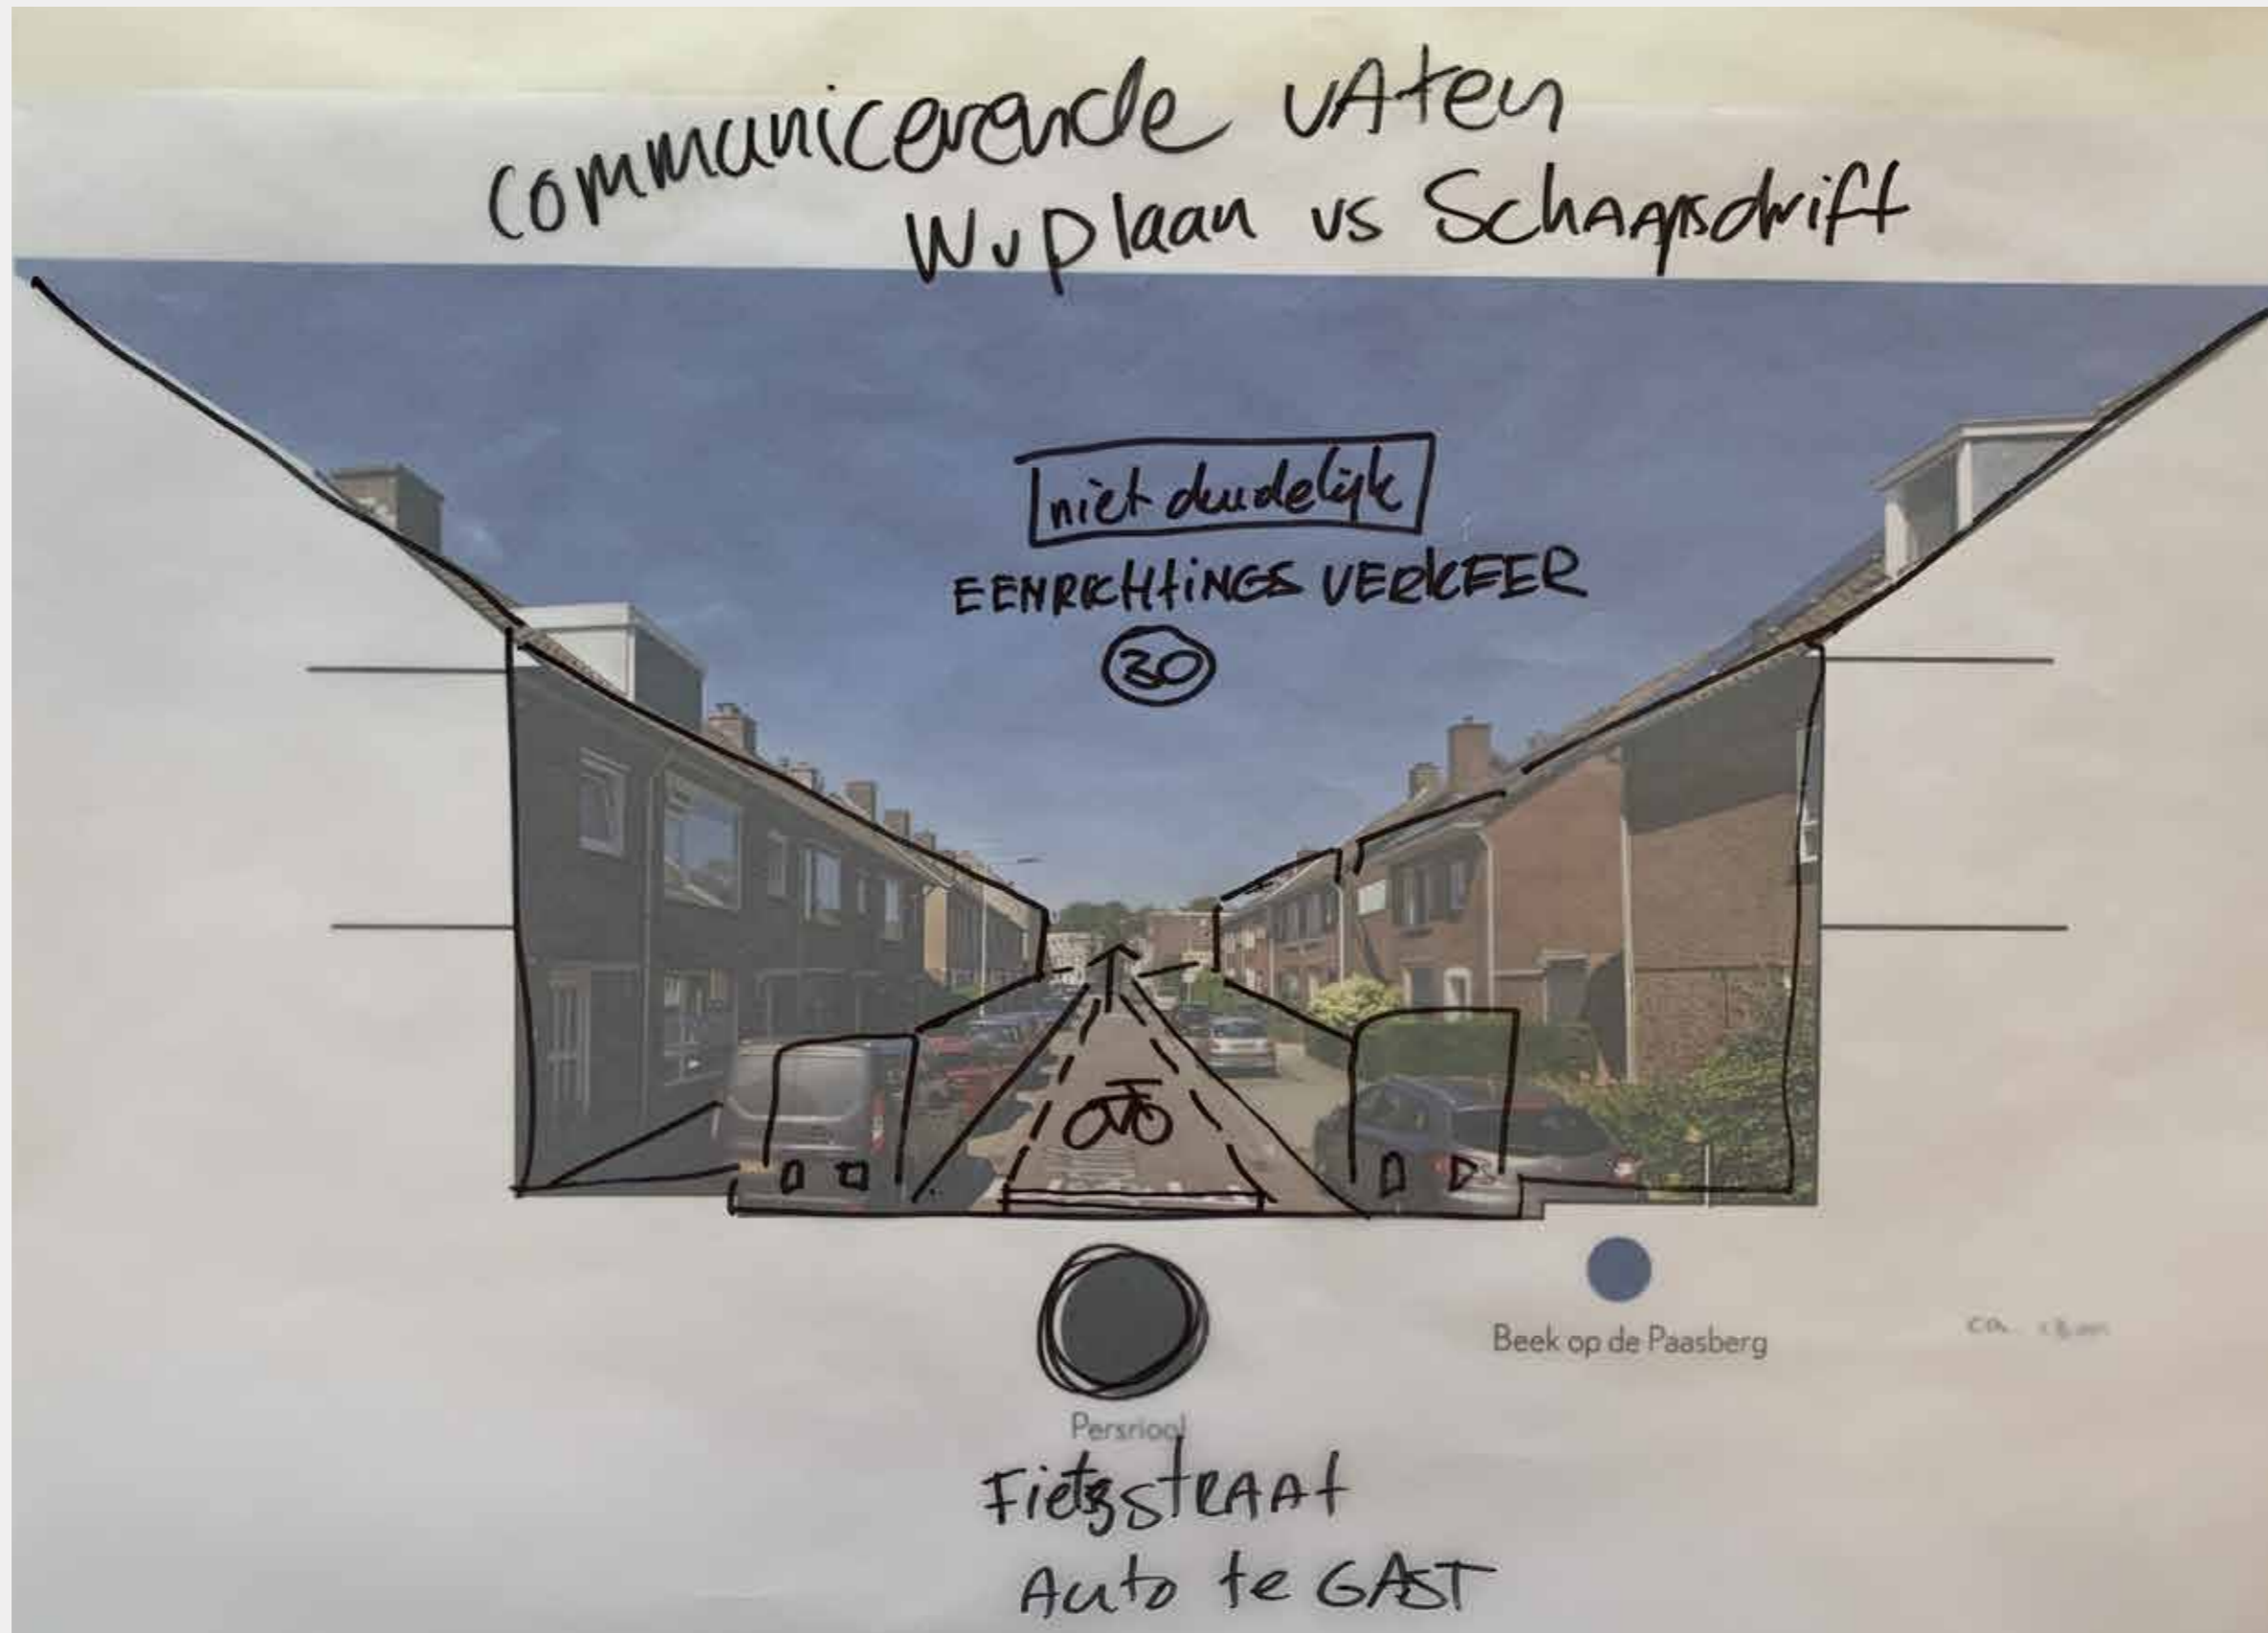 communicerende vAten
WvP laan vs SchAApsdrift
niet duidelijk
EENRICHtiNGS VERKEER
30
Beek op de Paasberg
ca.
Persriool
FietsstRAAt
Auto te GAST